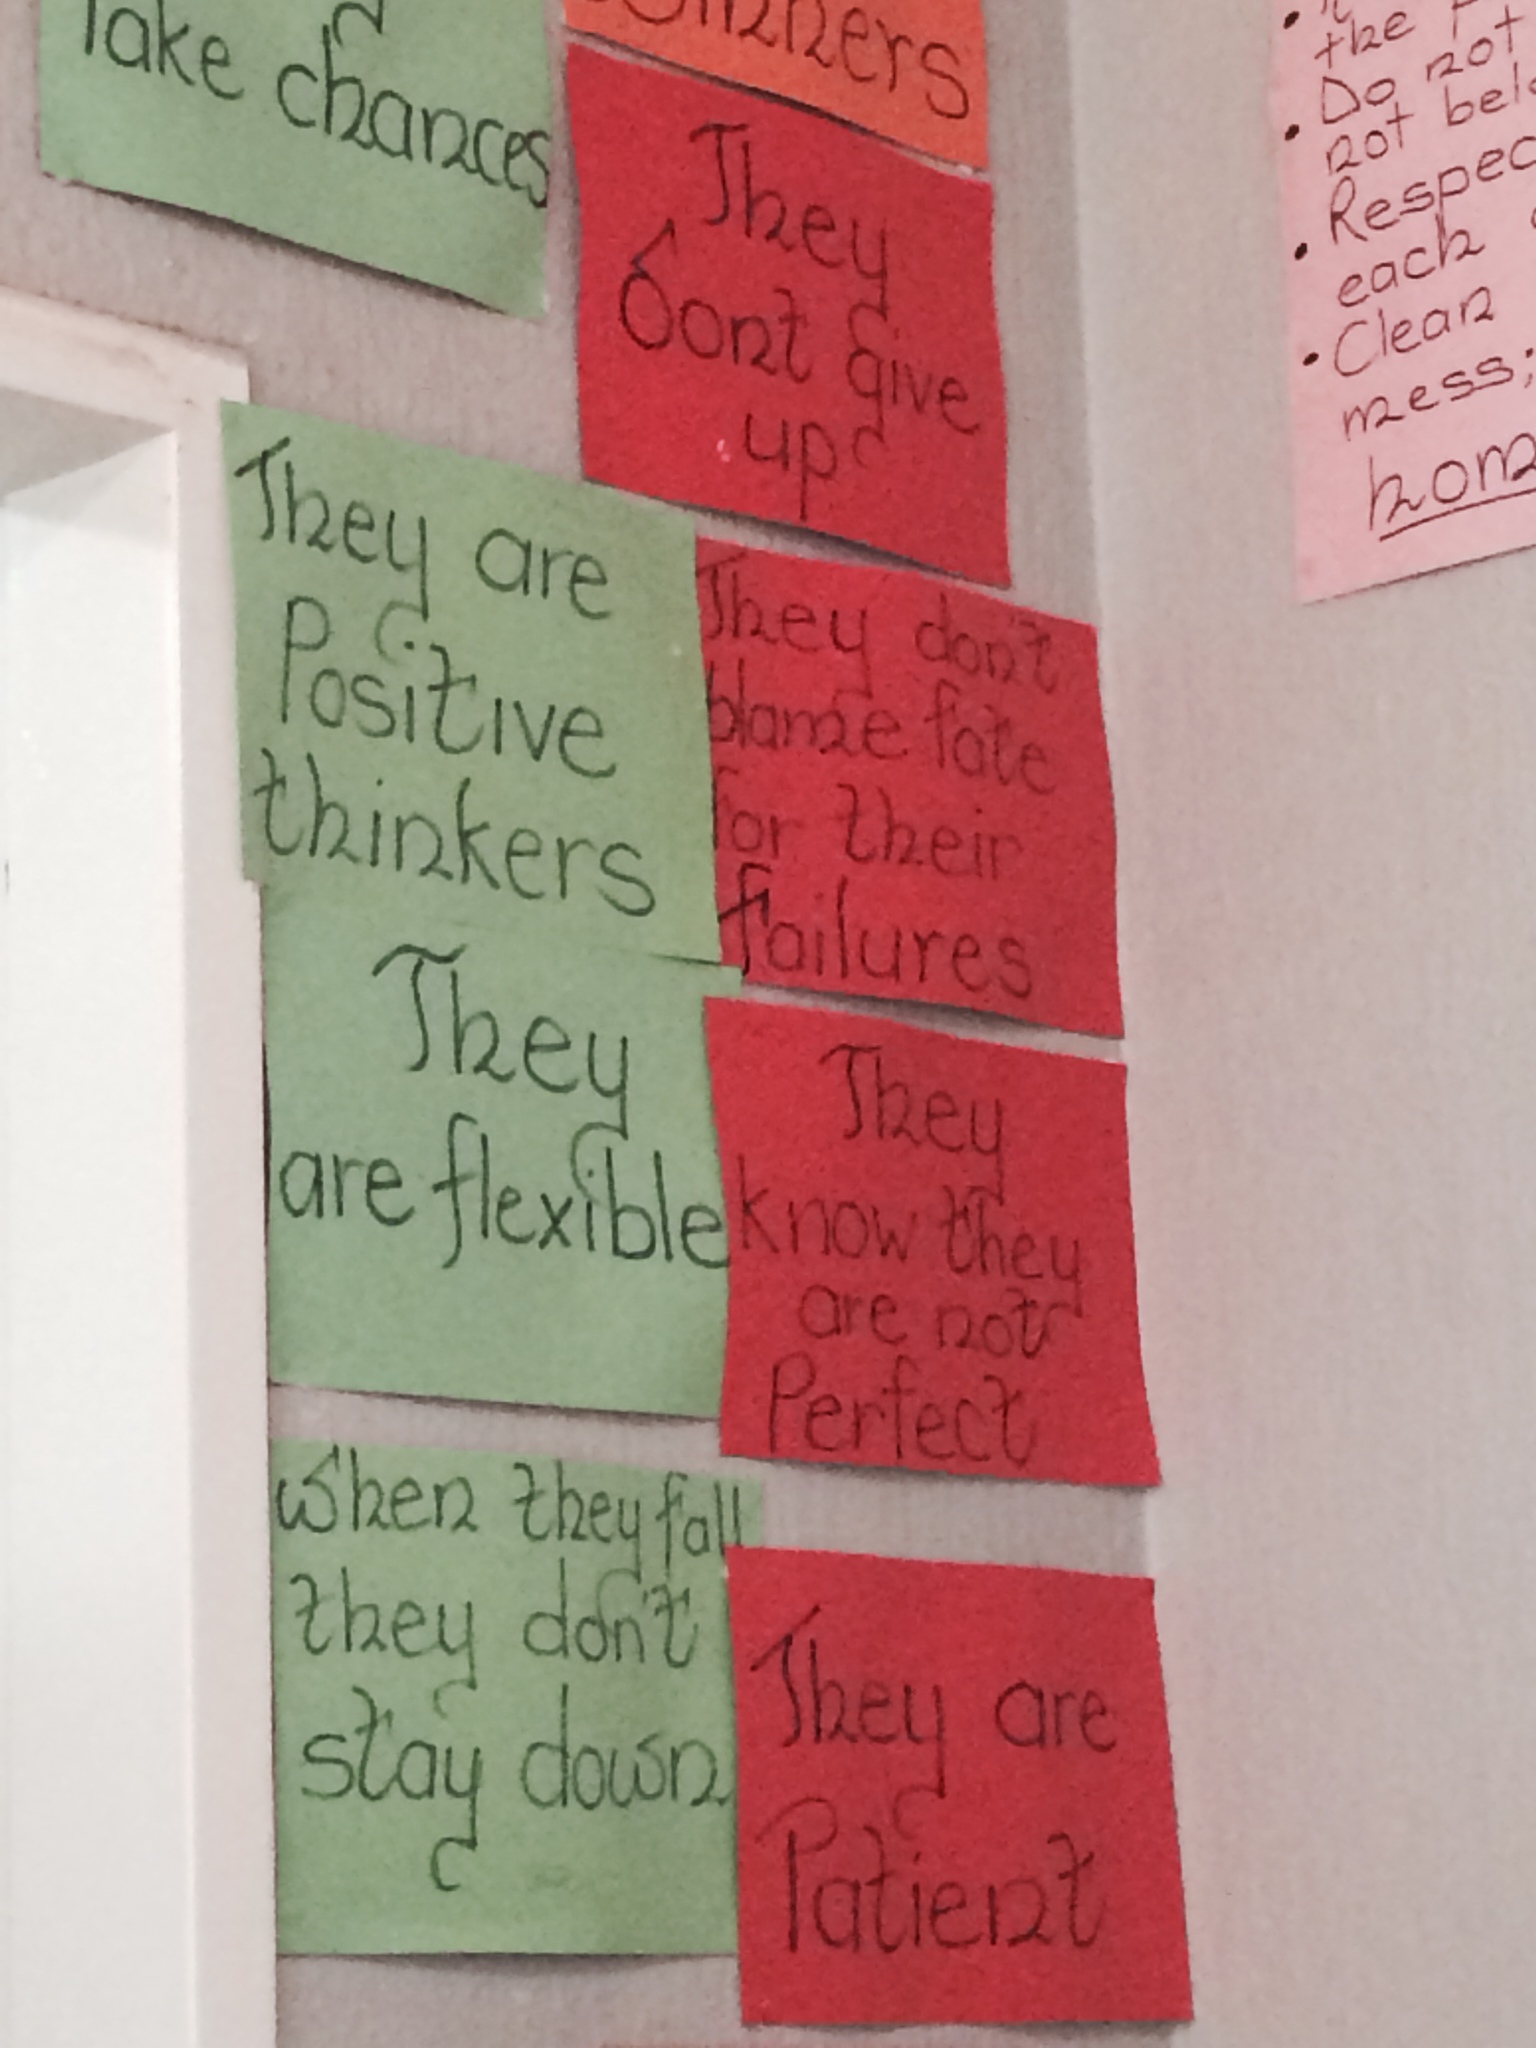 Take chances
They
Dont give
up
They are
Positive
thinkers
They don't
blame fate
for their
failures
They
are flexible
They
know they
are not
Perfect
when they fall
they don't
stay down
They are
Patient
the
Do not
not
Respec
each
Clean
mess;